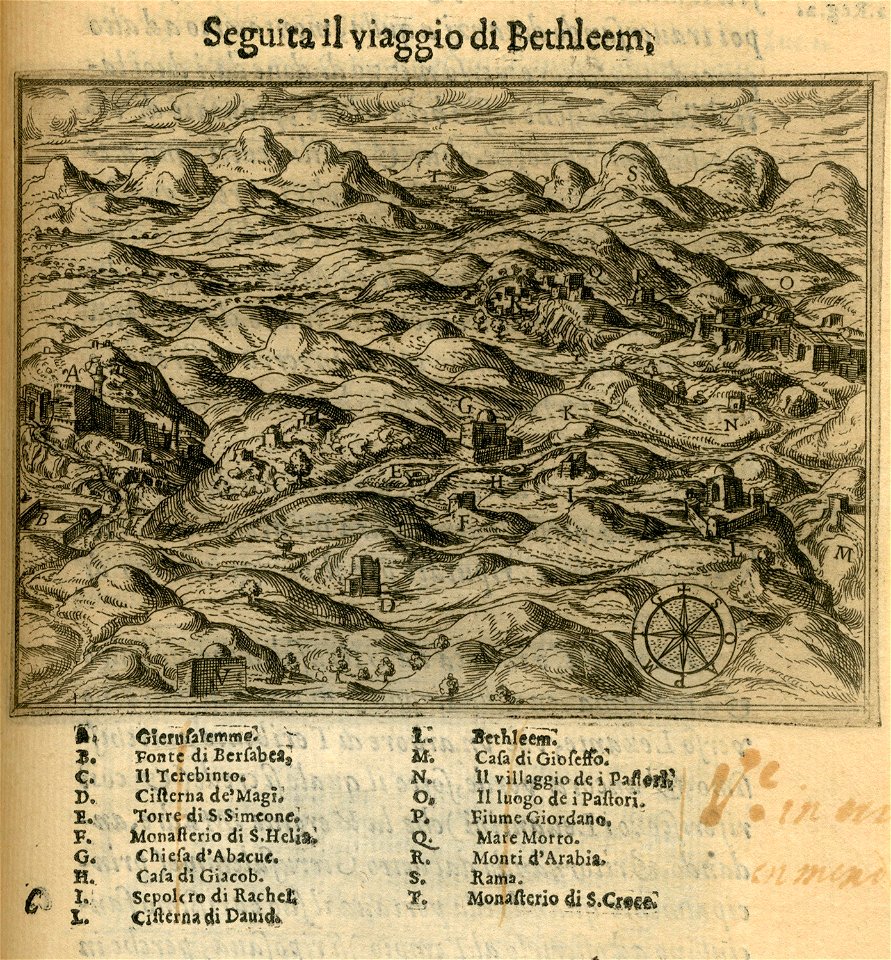 Seguita il viaggio di Bethleem,
T
S
Q
O
A
G
K
N
C
E
H
I
B
F
L
M
D
V
A. Gierusalemme.
B. Fonte di Bersabea,
C. Il Terebinto.
D. Cisterna de'Magi.
E. Torre di S. Simeone.
F. Monasterio di S. Helia.
G. Chiesa d'Abacuc.
H. Casa di Giacob.
I. Sepolcro di Rachel.
L. Cisterna di Dauid.
L. Bethleem.
M. Casa di Gioseffo.
N. Il villaggio de i Pastori,
O. Il luogo de i Pastori.
P. Fiume Giordano,
Q. Mare Morto.
R. Monti d'Arabia.
S. Rama.
T. Monasterio di S. Croce.